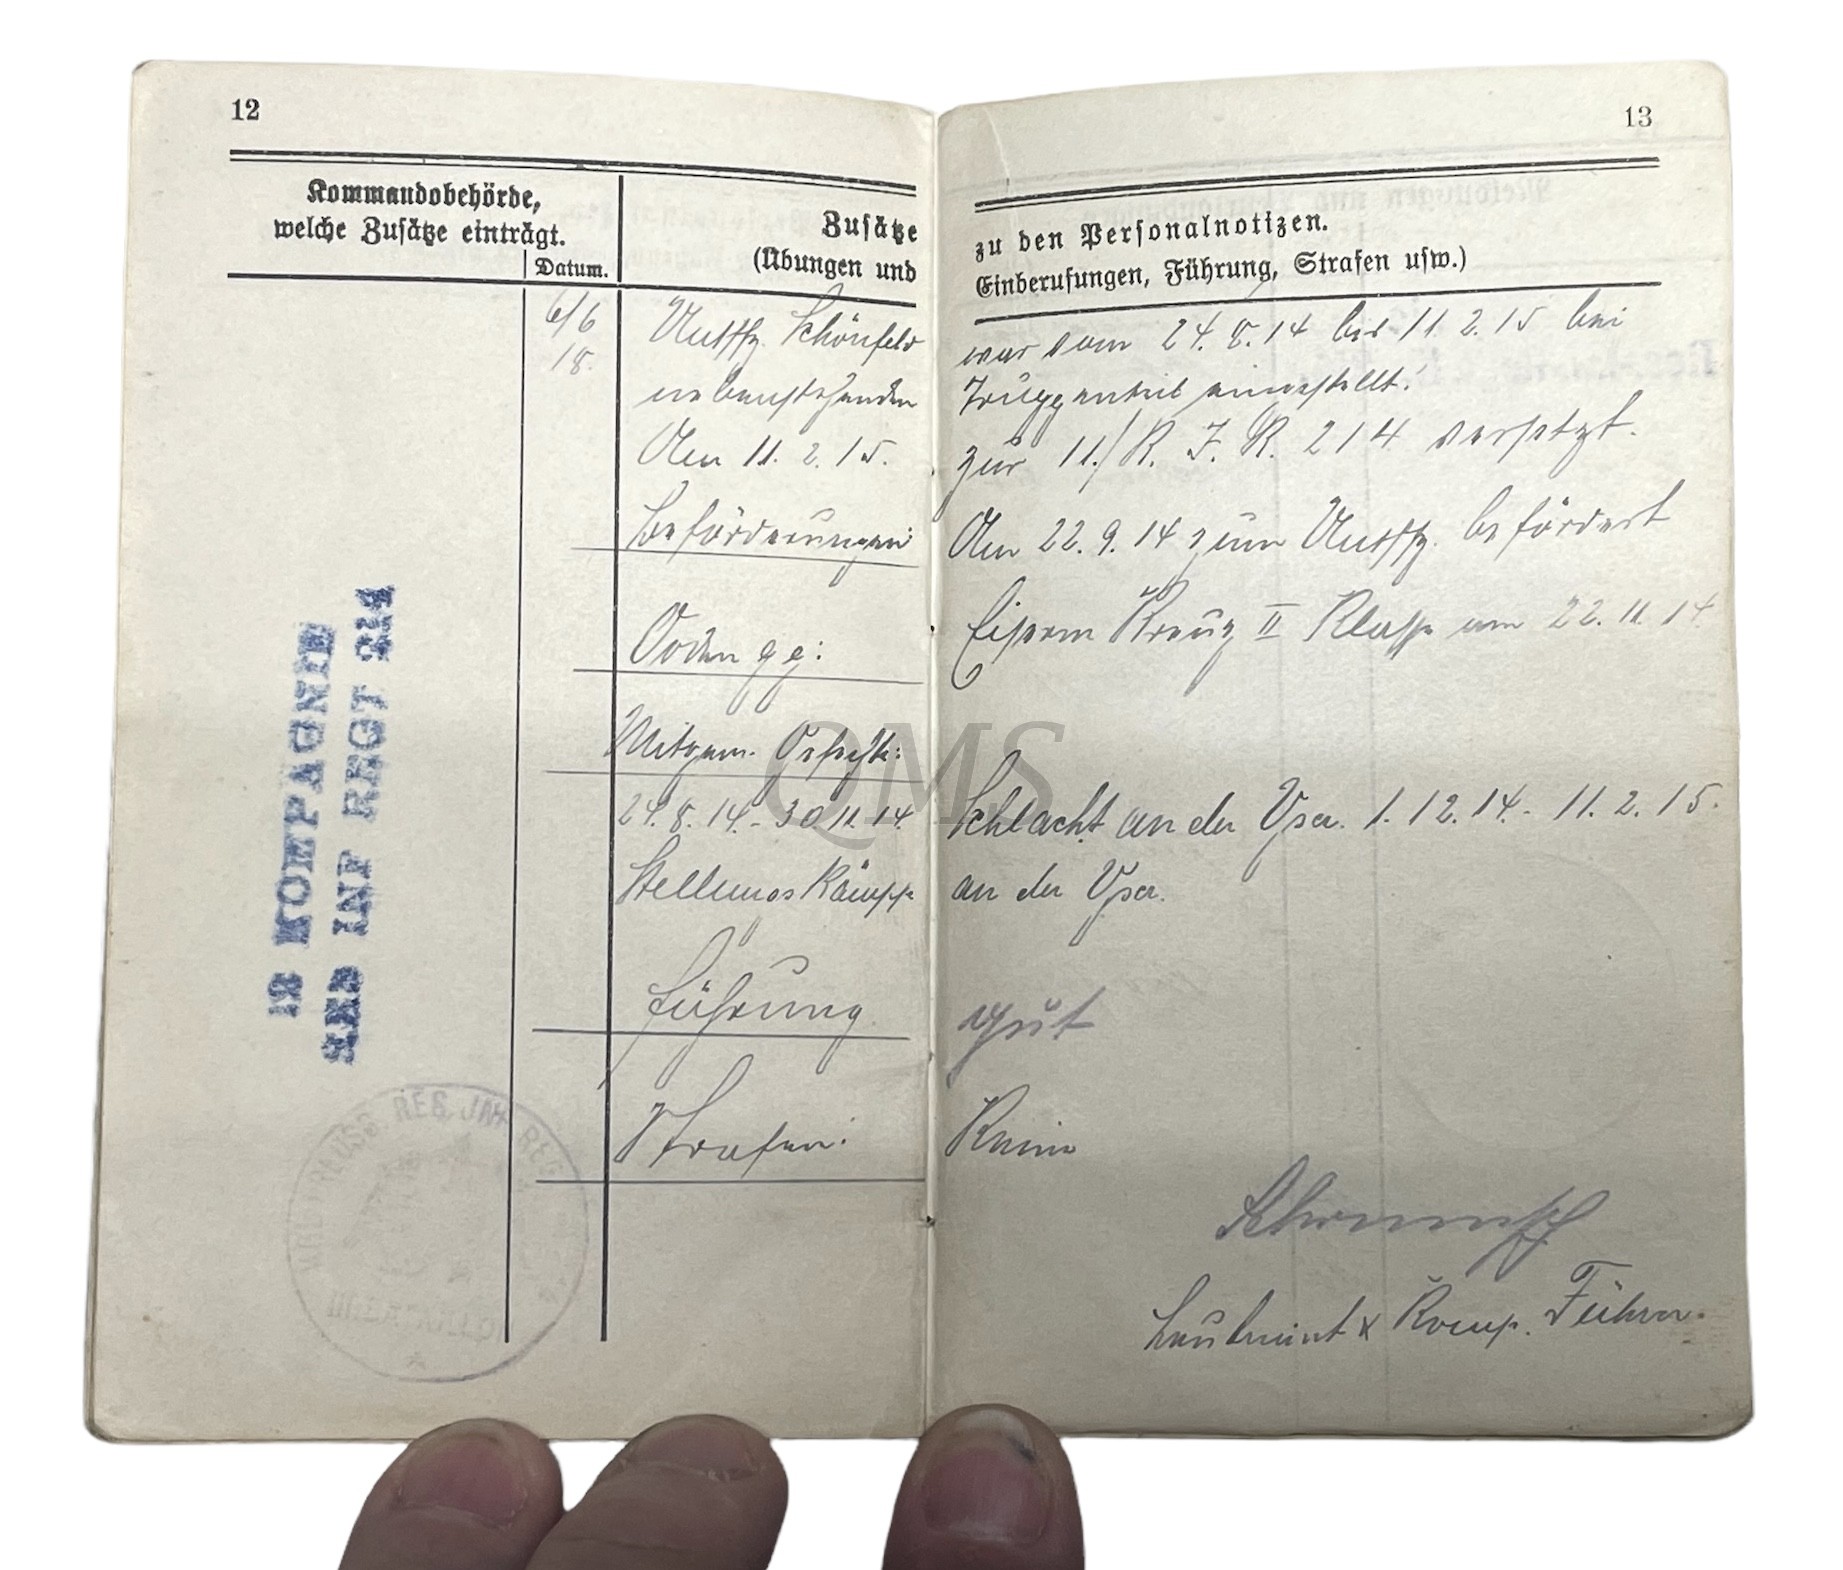 12
Kommandobehörde,
welche Zusätze einträgt.
Datum.
Zusätze
(Übungen und
6/6
18.
Untffz. Schönfeld
nebenstehenden
Am 11. 2. 15.
Beförderungen:
Orden
Mitgem. Gefechte:
24. 8. 14. - 30 11. 14.
Stellungskämpfe
Führung
Strafen:
12 KOMPAGNIE
RES INF REGT 214
PREUSS. RES. JNF. REG
13
zu den Personalnotizen.
Einberufungen, Führung, Strafen usw.)
war vom 24. 8. 14 bis 11. 2. 15 bei
Truppenteil eingestellt.
zur 11./R. I. R. 214 versetzt.
Am 22. 9. 14 zum Untffz. befördert
Eisern Kreuz II Klasse am 22. 11. 14
Schlacht an der Yser. 1. 12. 14. - 11. 2. 15.
an der Yser.
gut
Keine
Leutnant & Komp. Führer.
QMS